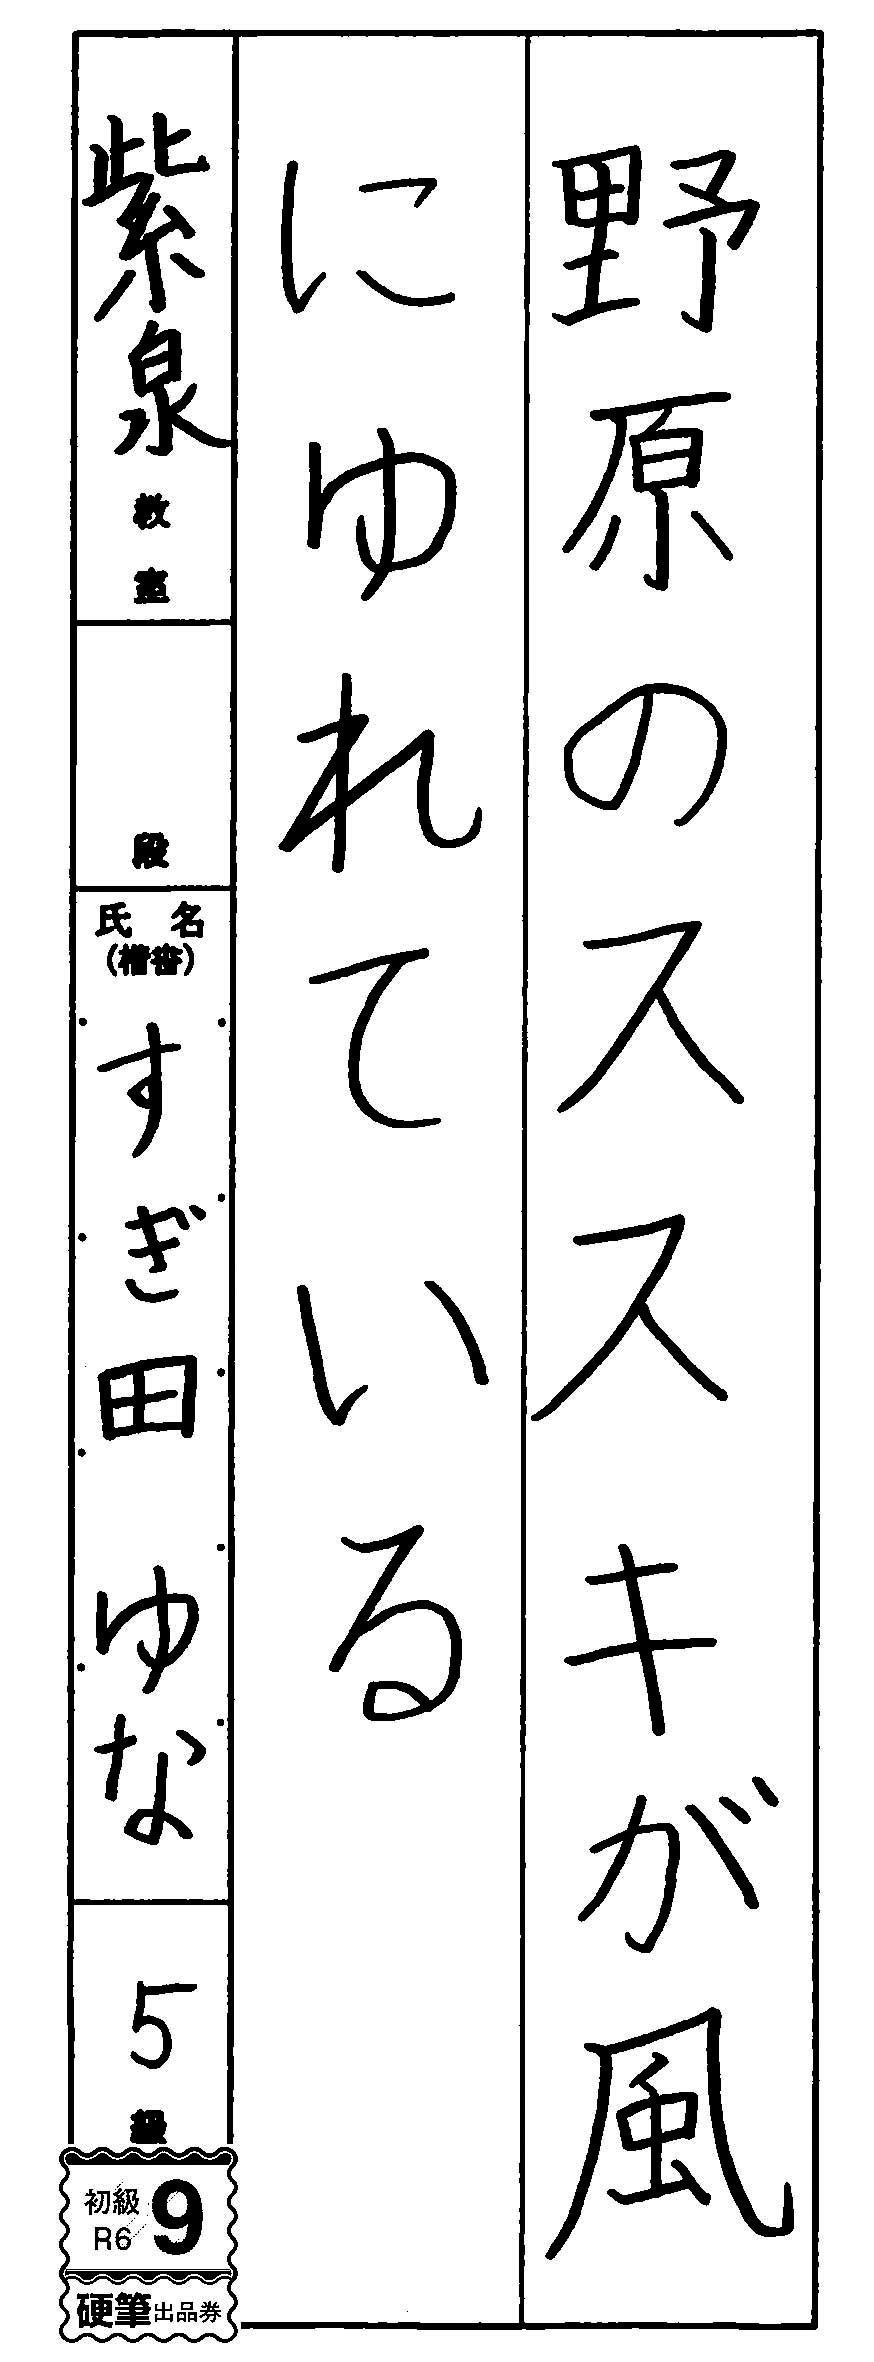 野原のススキが風
にゆれている
紫泉教室
段
氏名
(楷書)
すぎ田 ゆな
5級
初級
R6
9
硬筆出品券